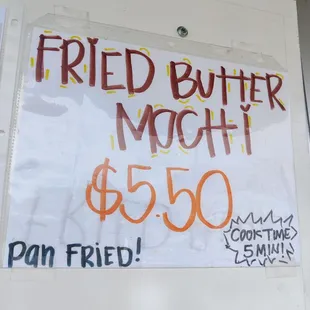 FRIED BUTTER
MOCHI
$5.50
COOKTIME
5 MIN!
Pan FRIED!